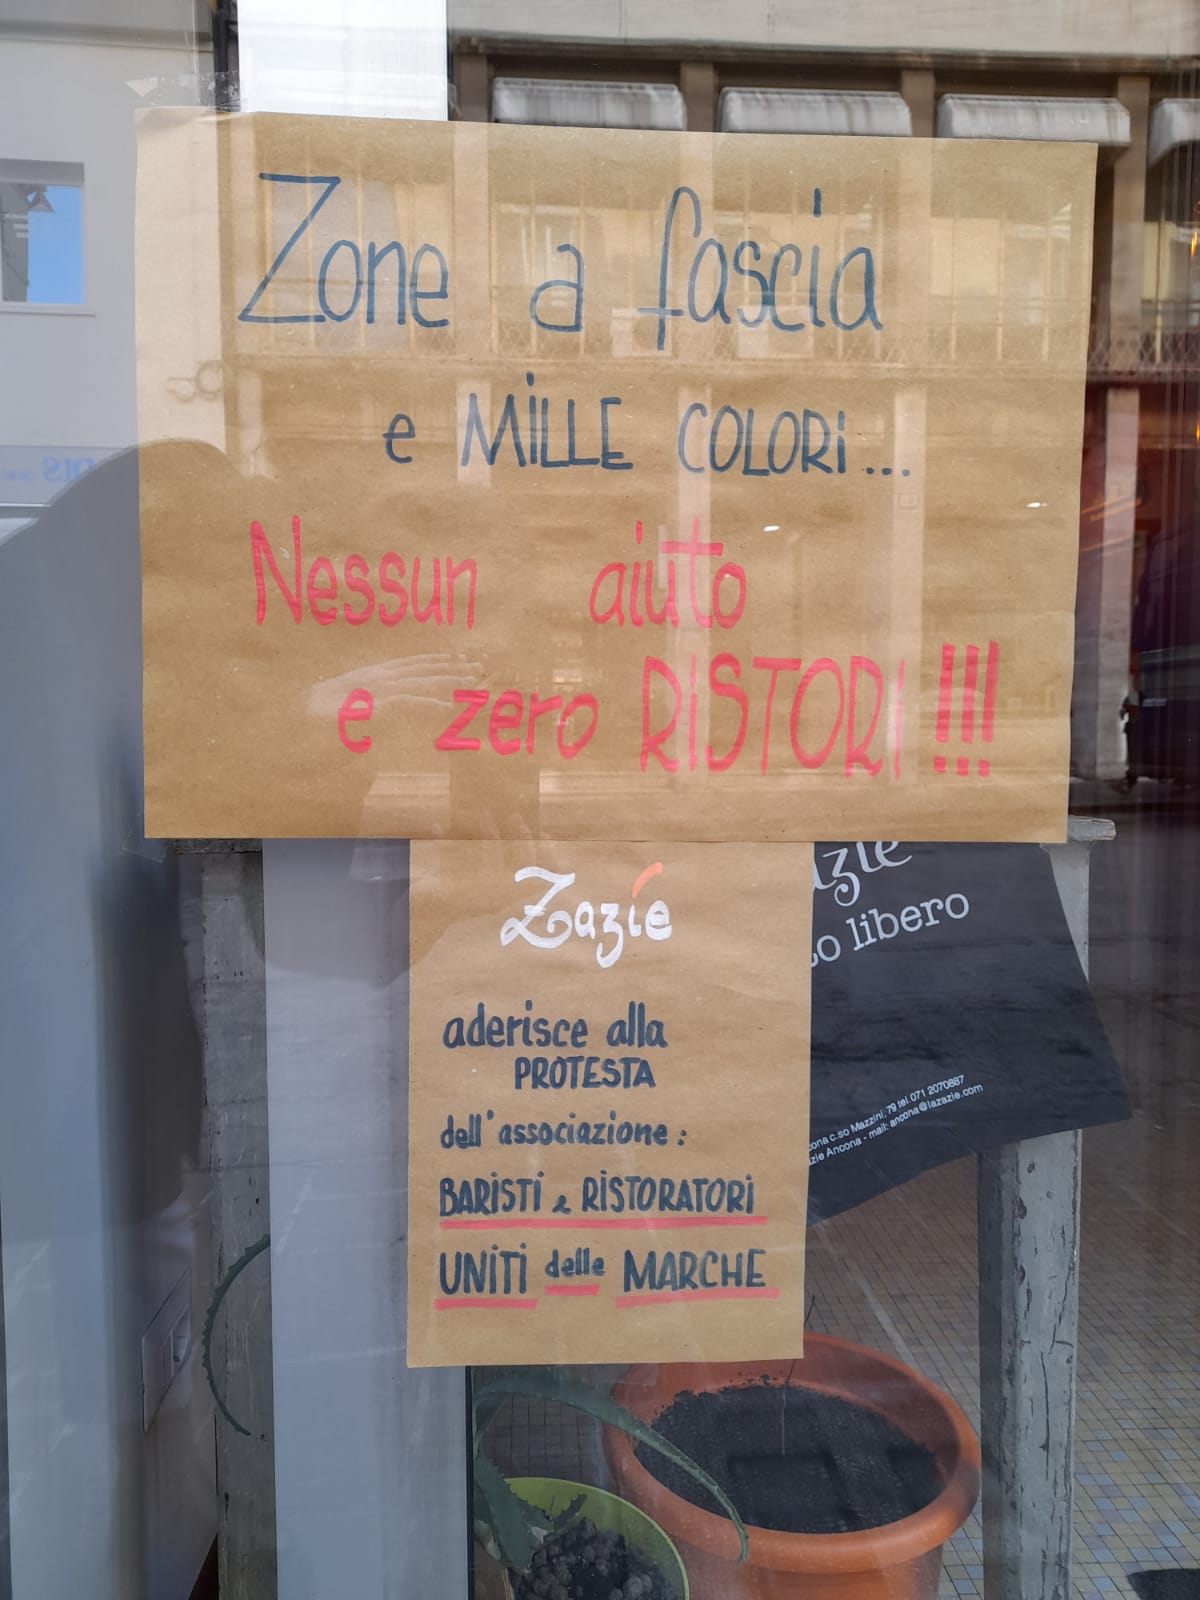 Zone a fascia
e MILLE COLORI...
Nessun aiuto
e zero RISTORI!!!
Zazie
aderisce alla
PROTESTA
dell'associazione:
BARISTI e RISTORATORI
UNITI delle MARCHE
libero
c.so Mazzini, 79 tel. 071 2070687
Ancona - mail: ancona@lazazie.com